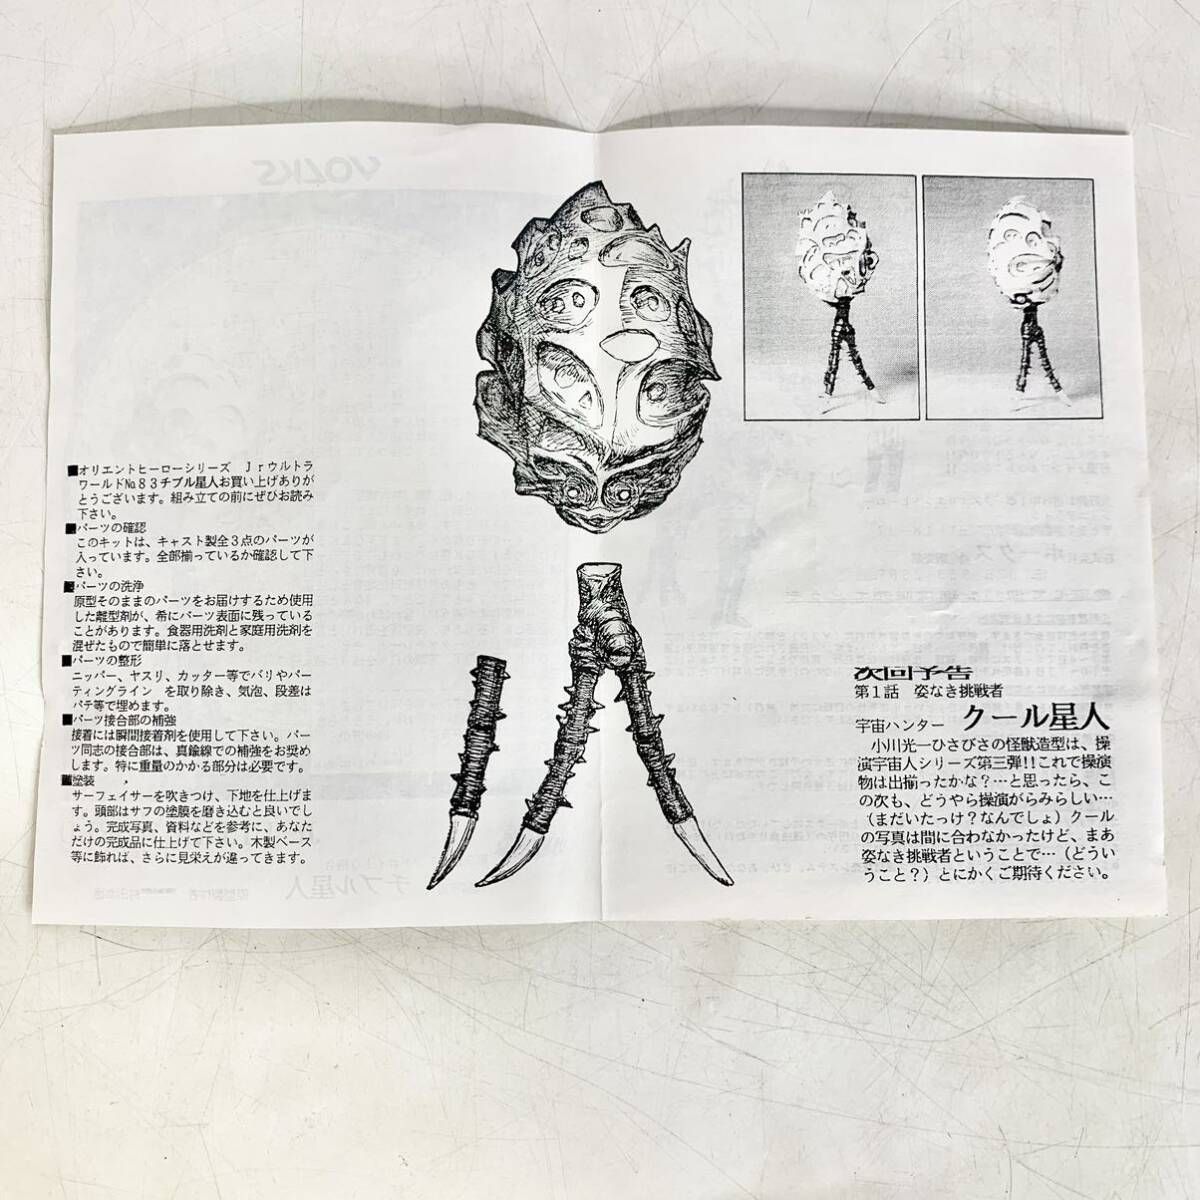 ■オリエントヒーローシリーズ Ｊｒウルトラ
ワールド№８３チブル星人お買い上げありが
とうございます。組み立ての前にぜひお読み
下さい。
■パーツの確認
このキットは、キャスト製全３点のパーツが
入っています。全部揃っているか確認して下
さい。
■パーツの洗浄
原型そのままのパーツをお届けするため使用
した離型剤が、希にパーツ表面に残っている
ことがあります。食器用洗剤と家庭用洗剤を
混ぜたもので簡単に落とせます。
■パーツの整形
ニッパー、ヤスリ、カッター等でバリやパー
ティングライン を取り除き、気泡、段差は
パテ等で埋めます。
■パーツ接合部の補強
接着には瞬間接着剤を使用して下さい。パー
ツ同志の接合部は、真鍮線での補強をお奨め
します。特に重量のかかる部分は必要です。
■塗装
サーフェイサーを吹きつけ、下地を仕上げま
す。頭部はサフの塗膜を磨き込むと良いでし
ょう。完成写真、資料などを参考に、あなた
だけの完成品に仕上げて下さい。木製ベース
等に飾れば、さらに見栄えが違ってきます。
次回予告
第１話 姿なき挑戦者
宇宙ハンター クール星人
小川光一ひさびさの怪獣造型は、操
演宇宙人シリーズ第三弾!!これで操演
物は出揃ったかな？…と思ったら、こ
の次も、どうやら操演がらみらしい…
（まだいたっけ？なんでしょ）クール
の写真は間に合わなかったけど、まあ
姿なき挑戦者ということで…（どうい
うこと？）とにかくご期待ください。
VOLKS
チブル星人